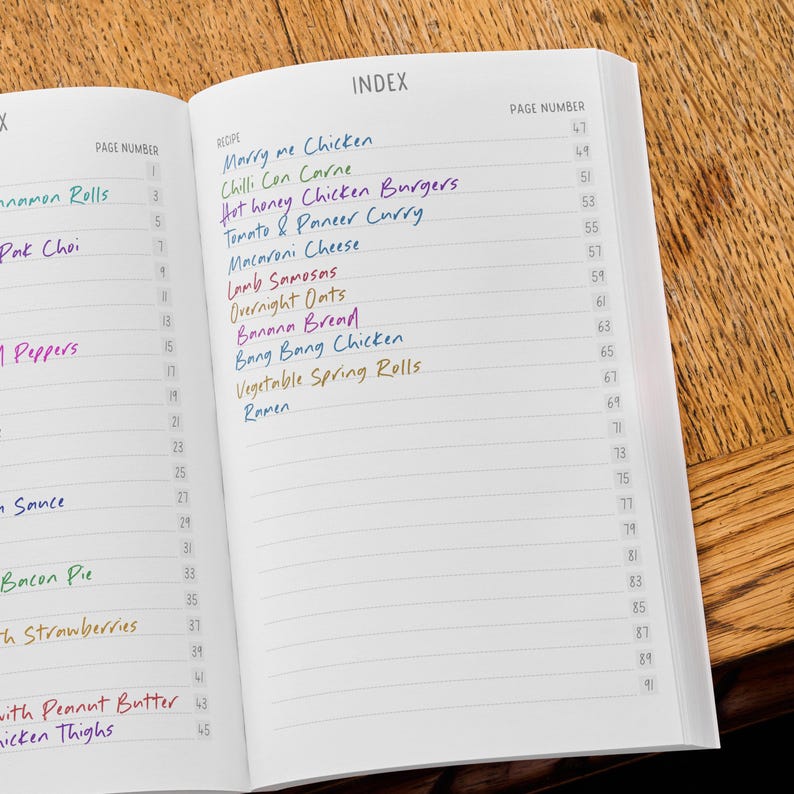 X
PAGE NUMBER
1
nnamon Rolls 3
5
Pak Choi 7
9
11
13
Peppers 15
17
19
21
23
25
Sauce 27
29
31
Bacon Pie 33
35
th Strawberries 37
39
41
with Peanut Butter 43
hicken Thighs 45
INDEX
RECIPE PAGE NUMBER
Marry me Chicken 47
Chilli Con Carne 49
Hot honey Chicken Burgers 51
Tomato & Paneer Curry 53
Macaroni Cheese 55
Lamb Samosas 57
Overnight Oats 59
Banana Bread 61
Bang Bang Chicken 63
Vegetable Spring Rolls 65
Ramen 67
69
71
73
75
77
79
81
83
85
87
89
91